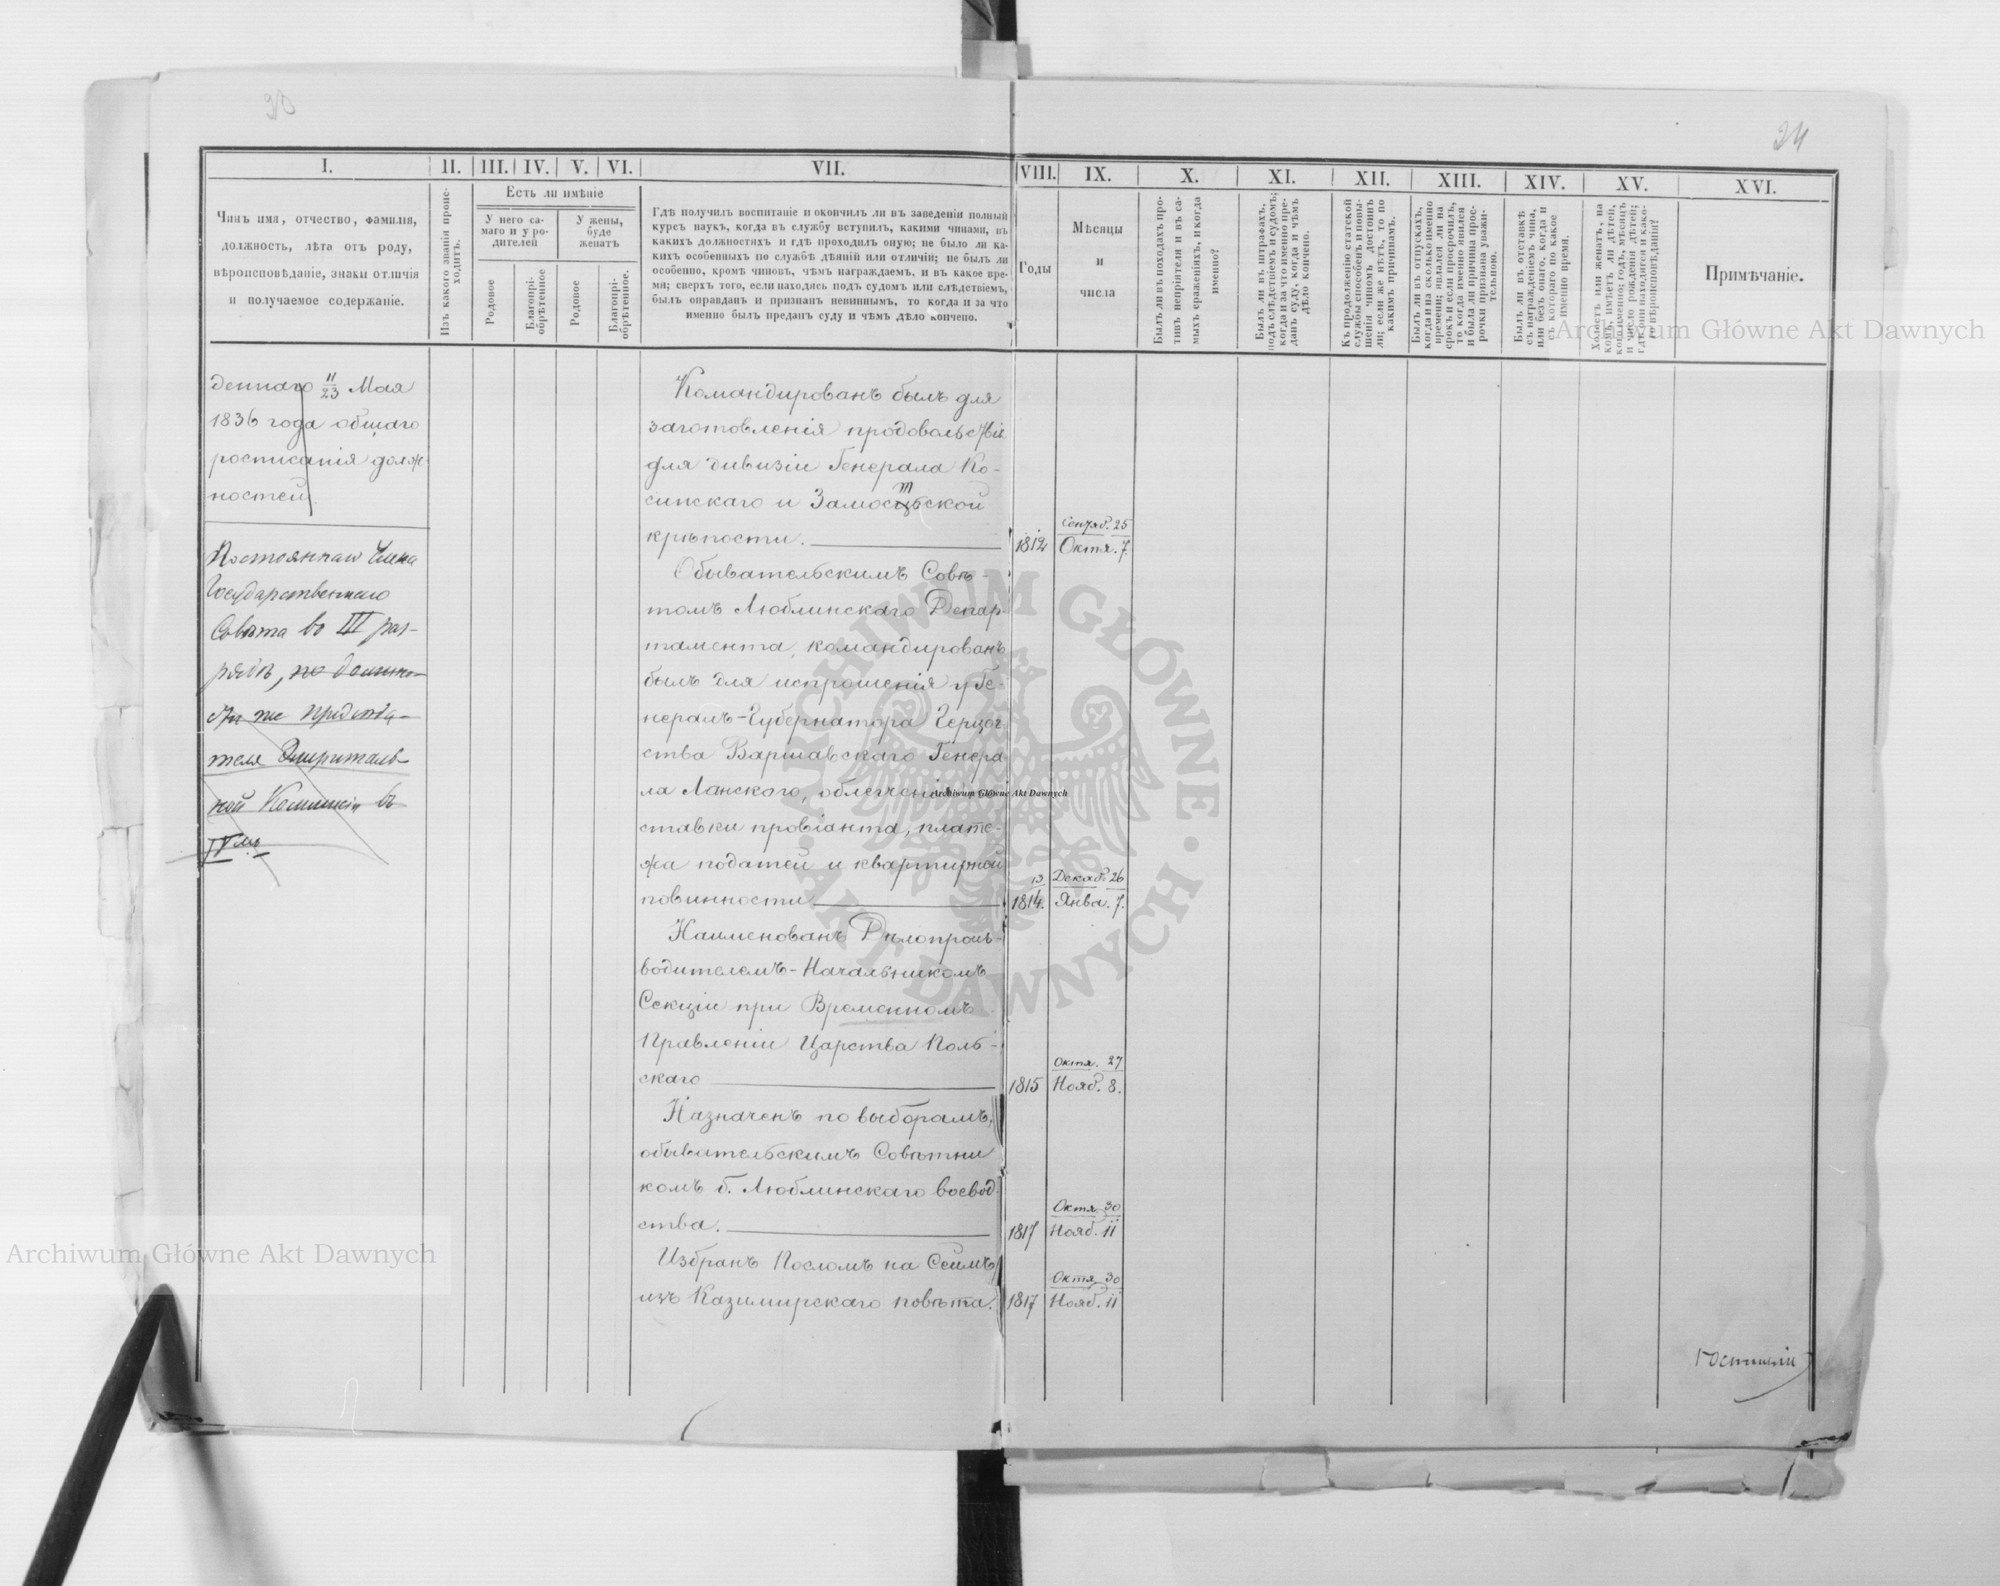 20
24
I.
II.
III.
IV.
V.
VI.
VII.
VIII.
IX.
X.
XI.
XII.
XIII.
XIV.
XV.
XVI.
Чинъ имя, отчество, фамилія,
должность, лѣта отъ роду,
вѣроисповѣданіе, знаки отличія
и получаемое содержаніе.
Изъ какого званія проис-
ходитъ.
Есть ли имѣніе
У него са-
маго и у ро-
дителей
У жены,
буде
женатъ
Родовое
Благопрі-
обрѣтенное
Родовое
Благопрі-
обрѣтенное.
Гдѣ получилъ воспитаніе и окончилъ ли въ заведеніи полный
курсъ наукъ, когда въ службу вступилъ, какими чинами, въ
какихъ должностяхъ и гдѣ проходилъ оную; не было ли ка-
кихъ особенныхъ по службѣ дѣяній или отличій; не былъ ли
особенно, кромѣ чиновъ, чѣмъ награждаемъ, и въ какое вре-
мя; сверхъ того, если находясь подъ судомъ или слѣдствіемъ,
былъ оправданъ и признанъ невиннымъ, то когда и за что
именно былъ преданъ суду и чѣмъ дѣло кончено.
Годы
Мѣсяцы
и
числа
Былъ ли въ походахъ про-
тивъ непріятеля и въ са-
мыхъ сраженіяхъ, и когда
именно?
Былъ ли въ штрафахъ,
подъ слѣдствіемъ и судомъ;
когда и за что именно пре-
данъ суду, когда и чѣмъ
дѣло кончено.
Къ продолженію статской
службы способенъ и повы-
шенія чиномъ достоинъ
ли; если же нѣтъ, то по
какимъ причинамъ.
Былъ ли въ отпускахъ,
когда и на сколько именно
времени; явился ли на
срокъ и если просрочилъ,
то когда именно явился
и была ли причина прос-
рочки признана уважи-
тельною.
Былъ ли въ отставкѣ
съ награжденіемъ чина,
или безъ онаго, когда и
съ котораго по какое
именно время.
Холостъ или женатъ, на
комъ, имѣетъ ли дѣтей,
кого именно; годъ, мѣсяцъ
и число рожденія дѣтей;
гдѣ они находятся и како-
го вѣроисповѣданія?
Примѣчаніе.
деннаго 11/23 Мая
1836 года общаго
росписанія долж-
ностей.
Постояннаго Члена
Государственнаго
Совѣта во III раз-
рядѣ, по должно-
сти же Предсѣда-
теля Эмериталь-
ной Комиссіи въ
IVмъ
Командированъ былъ для
заготовленія продовольствія
для дивизіи Генерала Ко-
синскаго и Замостьской
крѣпости.
1812
Сентяб. 25
Октя. 7.
Обывательскимъ Совѣ-
томъ Люблинскаго Депар-
тамента, командированъ
былъ для испрошенія у Ге-
нералъ-Губернатора Герцог
ства Варшавскаго Генера
ла Ланскаго, облегченія
ставки провіанта, плате-
жа податей и квартирной
повинности
13
1814.
Декаб. 26
Янва. 7.
Наименованъ Дѣлопроиз-
водителемъ-Начальникомъ
Секціи при Временномъ
Правленіи Царства Поль-
скаго
1815
Октя. 27
Нояб. 8.
Назначенъ по выборамъ,
обывательскимъ Совѣтни
комъ б. Люблинскаго воевод
ства.
1817
Октя. 30
Нояб. 11
Избранъ Посломъ на Сеймъ
изъ Казимирскаго повѣта.
1817
Октя. 30
Нояб. 11
Archiwum Główne Akt Dawnych
Archiwum Główne Akt Dawnych
Archiwum Główne Akt Dawnych
ARCHIWUM GŁÓWNE · AKT DAWNYCH ·